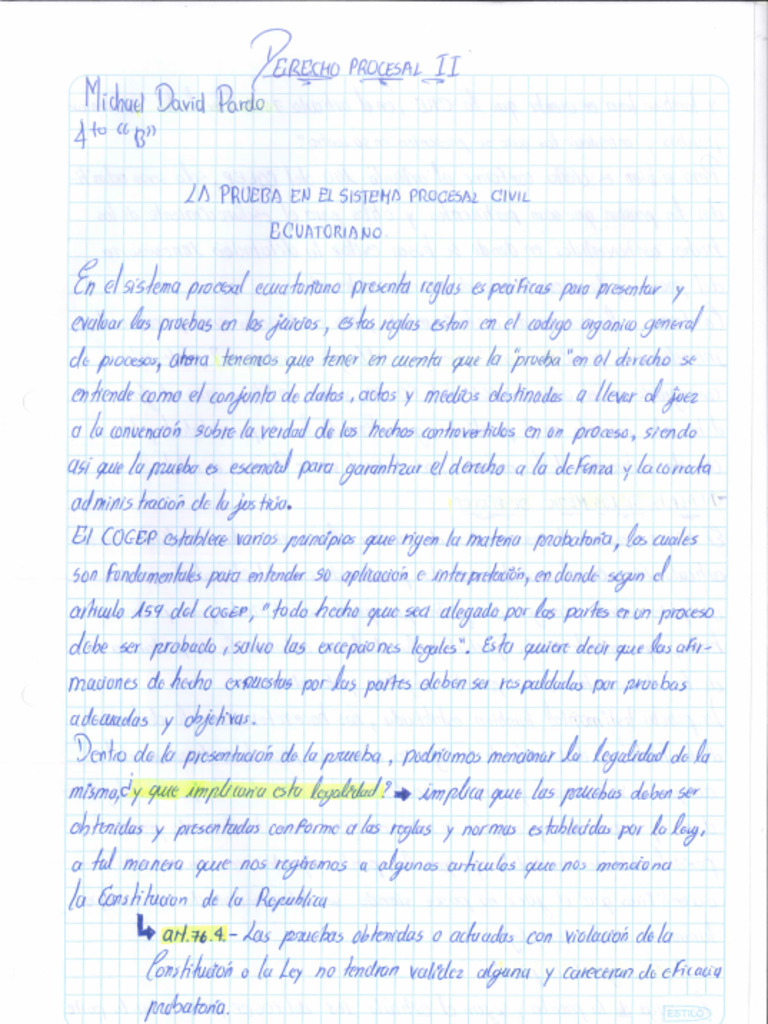 DERECHO PROCESAL II
Michael David Pardo
4to "B"
LA PRUEBA EN EL SISTEMA PROCESAL CIVIL
ECUATORIANO.
En el sistema procesal ecuatoriano presenta reglas especificas para presentar y
evaluar las pruebas en los juicios, estas reglas estan en el codigo organico general
de procesos, ahora tenemos que tener en cuenta que la "prueba" en el derecho se
entiende como el conjunto de datos, actos y medios destinados a llevar al juez
a la convención sobre la verdad de los hechos controvertidos en un proceso, siendo
asi que la prueba es escencial para garantizar el derecho a la defenza y la correcta
administración de la justicia.
El COGEP establece varios principios que rigen la materia probatoria, los cuales
son fundamentales para entender su aplicación e interpretación, en donde segun el
articulo 159 del COGEP, "todo hecho que sea alegado por las partes en un proceso
debe ser probado, salvo las excepciones legales". Esto quiere decir que las afir-
maciones de hecho expuestas por las partes deben ser respaldadas por pruebas
adecuadas y objetivas.
Dentro de la presentación de la prueba, podriamos mencionar la legalidad de la
misma, ¿y que implicaria esta legalidad? → implica que las pruebas deben ser
obtenidas y presentadas conforme a las reglas y normas establecidas por la ley,
a tal manera que nos regiremos a algunos articulos que nos menciona
la Constitucion de la Republica
↳ art.76.4.- Las pruebas obtenidas o actuadas con violación de la
Constitución o la Ley no tendran validez alguna y careceran de eficacia
probatoria.
ESTILO